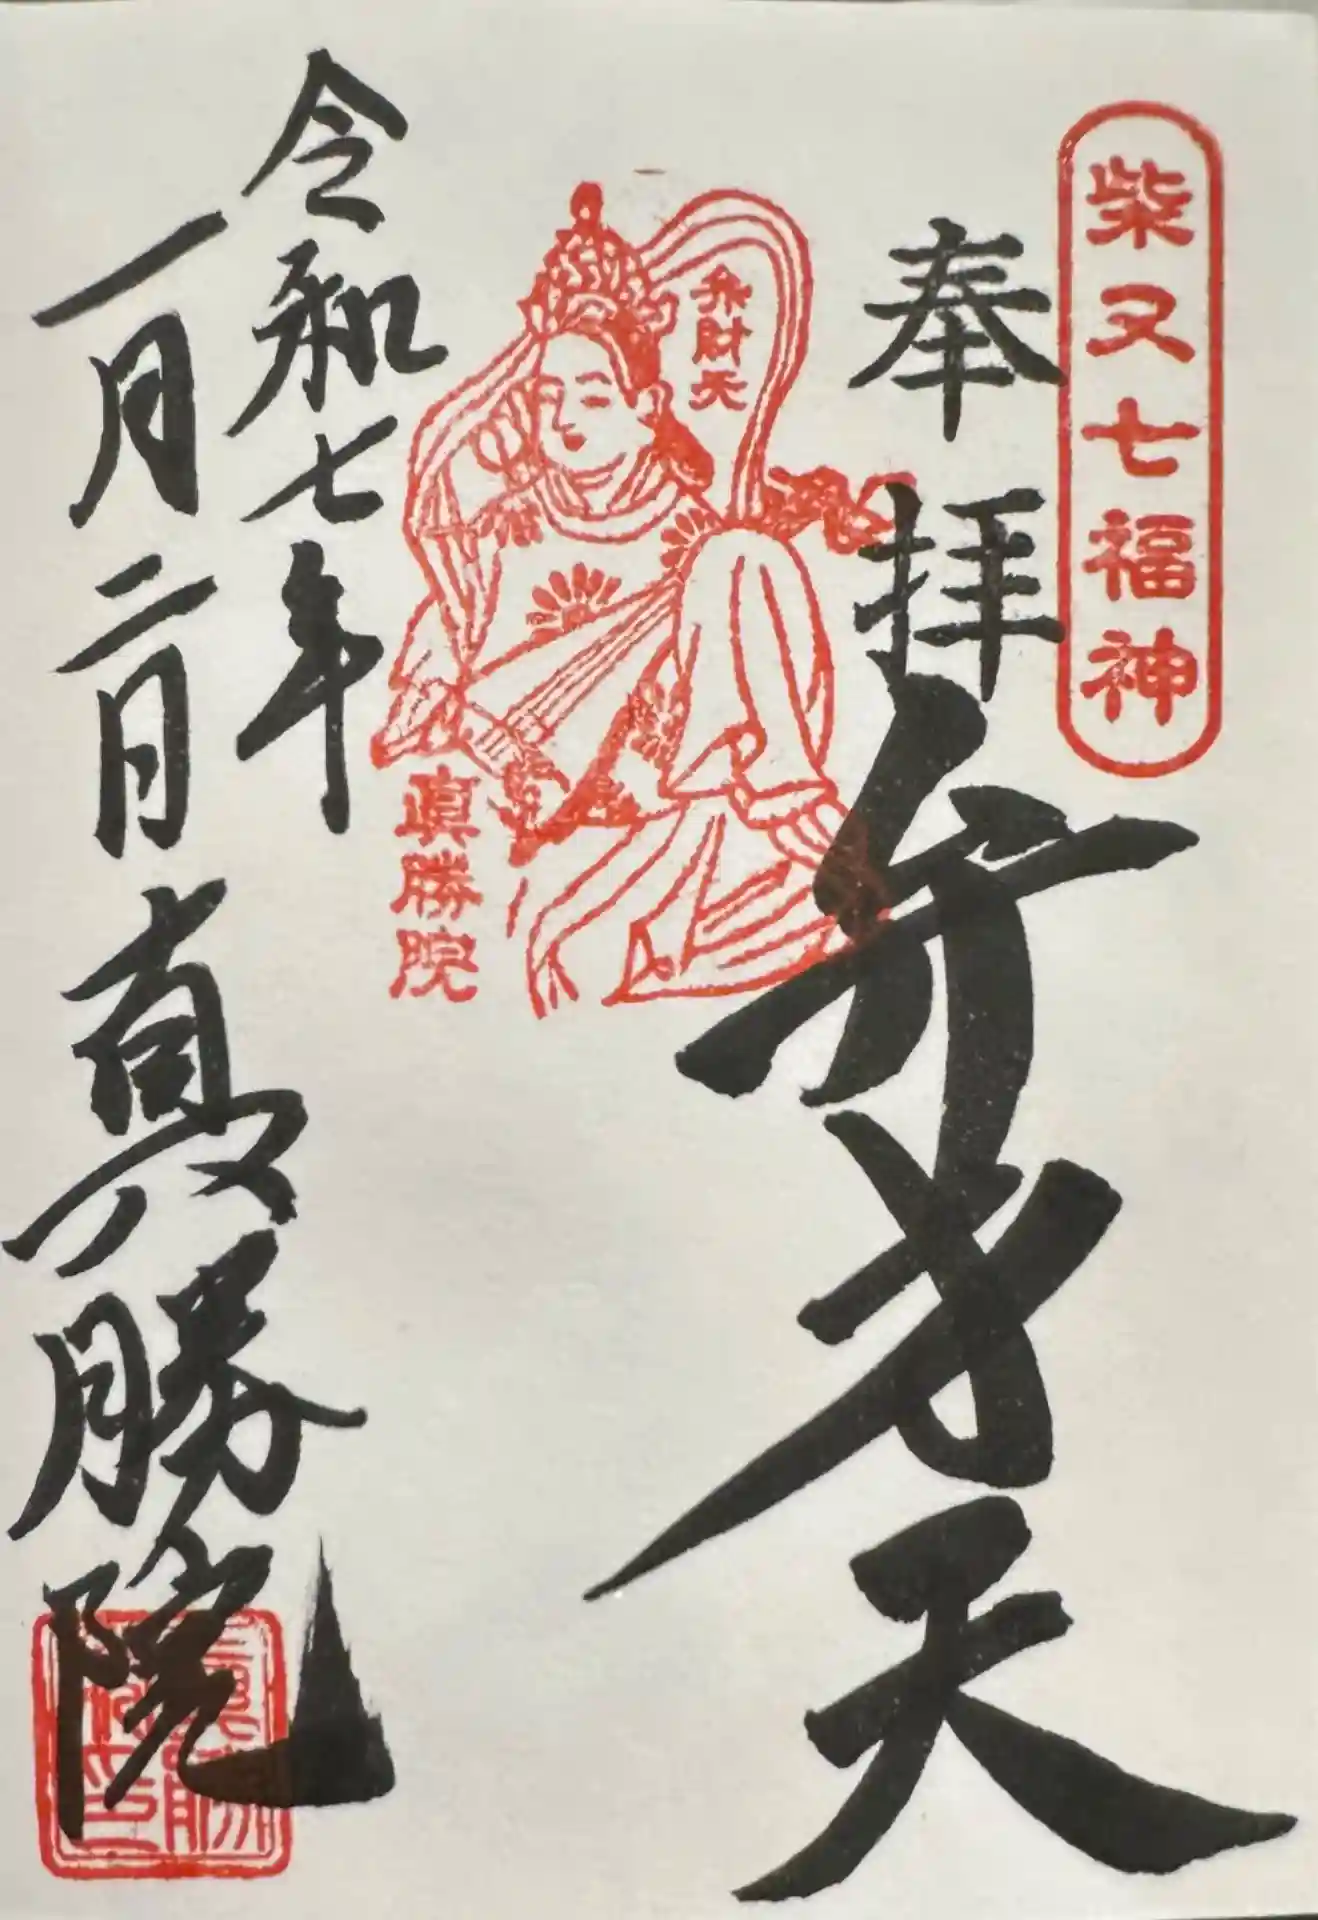 柴又七福神
奉拝
弁才天
弁財天
眞勝院
令和七年
一月二日
真勝院